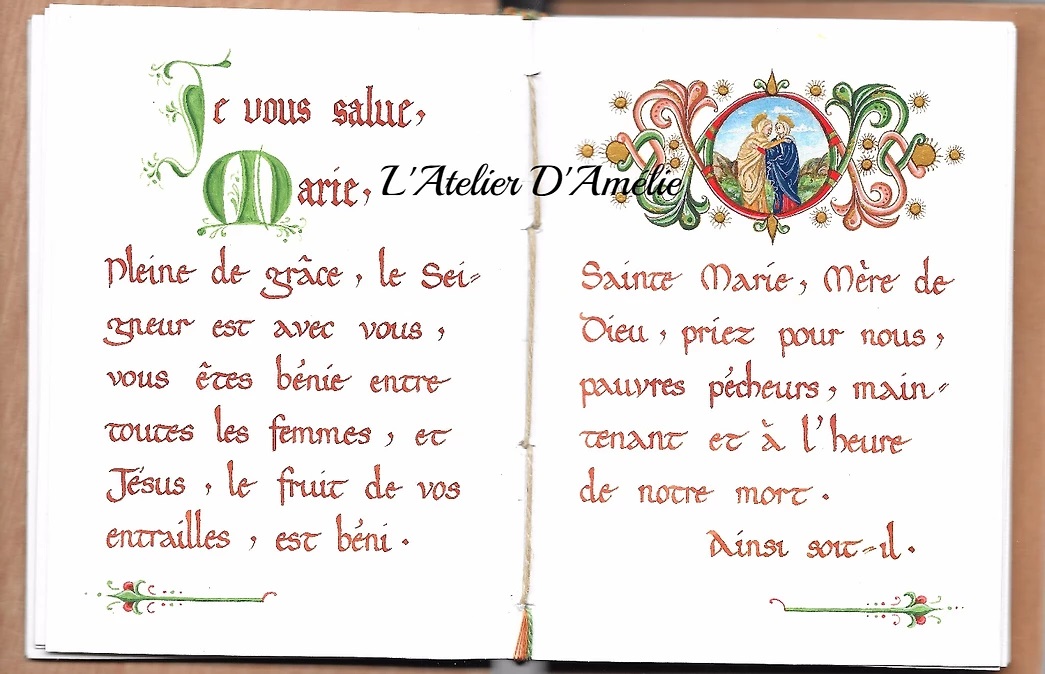 Je vous salue,
Marie,
L'Atelier D'Amélie
Pleine de grâce, le Sei-
gneur est avec vous,
vous êtes bénie entre
toutes les femmes, et
Jésus, le fruit de vos
entrailles, est béni.
Sainte Marie, Mère de
Dieu, priez pour nous,
pauvres pécheurs, main-
tenant et à l'heure
de notre mort.
Ainsi soit-il.